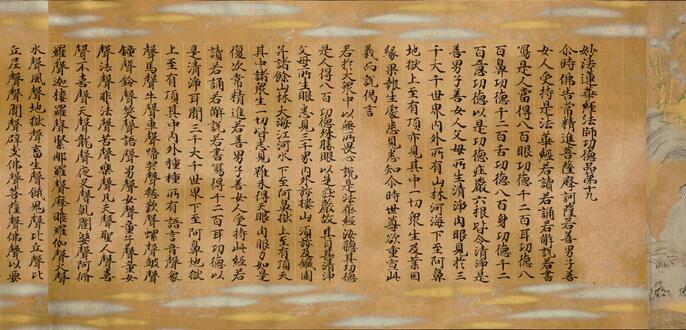 妙法蓮華經法師功德品第十九
尒時佛告常精進菩薩摩訶薩若善男子善
女人受持是法華經若讀若誦若解說若書
寫是人當得八百眼功德千二百耳功德八
百鼻功德千二百舌功德八百身功德千二
百意功德以是功德莊嚴六根皆令清淨是
善男子善女人父母所生清淨肉眼見於三
千大千世界內外所有山林河海下至阿鼻
地獄上至有頂亦見其中一切衆生及業因
緣果報生處悉見悉知尒時世尊欲重宣此
義而說偈言
若於大衆中以無所畏心說是法華經汝聽其功德
是人得八百功德殊勝眼以是莊嚴故其目甚清淨
父母所生眼悉見三千界內外弥樓山須弥及鐵圍
并諸餘山林大海江河水下至阿鼻獄上至有頂天
其中諸衆生一切皆悉見雖未得天眼肉眼力如是
復次常精進若善男子善女人受持此經若
讀若誦若解說若書寫得千二百耳功德以
是清淨耳聞三千大千世界下至阿鼻地獄
上至有頂其中內外種種所有語言音聲象
聲馬聲牛聲車聲啼哭聲愁歎聲螺聲鼓聲
鐘聲鈴聲笑聲語聲男聲女聲童子聲童女
聲法聲非法聲苦聲樂聲凡夫聲聖人聲喜
聲不喜聲天聲龍聲夜叉聲乾闥婆聲阿修
羅聲迦樓羅聲緊那羅聲摩睺羅伽聲火聲
水聲風聲地獄聲畜生聲餓鬼聲比丘聲比
丘尼聲聲聞聲辟支佛聲菩薩聲佛聲以要